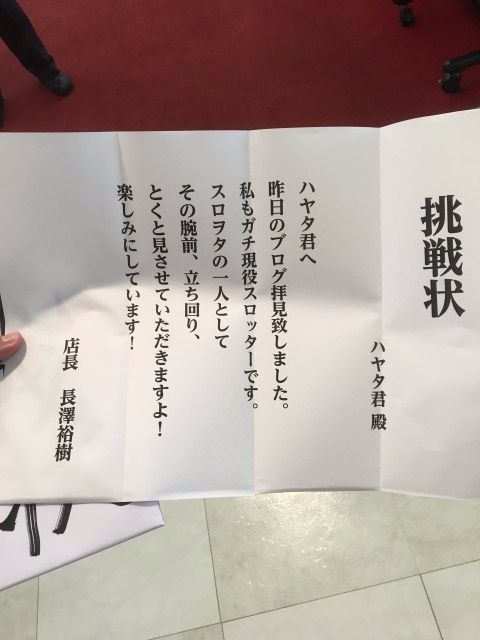 挑戦状
ハヤタ君 殿
ハヤタ君へ
昨日のブログ拝見致しました。
私もガチ現役スロッターです。
スロヲタの一人として
その腕前、立ち回り、
とくと見させていただきますよ！
楽しみにしています！
店長 長澤裕樹